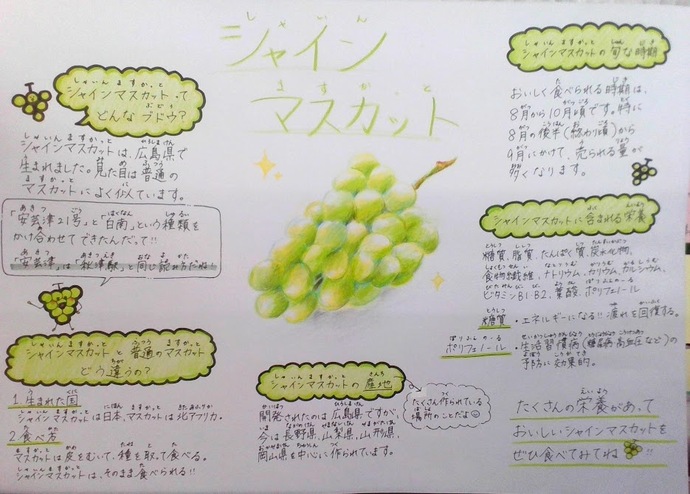 シャイン
マスカット
シャインマスカットって
どんなブドウ?
シャインマスカットは、広島県で
生まれました。見た目は普通の
マスカットによく似ています。
「安芸津21号」と「白南」という種類を
かけ合わせてできたんだって!!
「安芸津」は「秋津駅」と同じ読み方だね!
シャインマスカットと普通のマスカット
どう違うの?
1.生まれた国
シャインマスカットは日本、マスカットは北アフリカ。
2.食べ方
マスカットは皮をむいて、種を取って食べる。
シャインマスカットは、そのまま食べられる!!
シャインマスカットの産地
たくさん作られている
場所のことだよ
開発されたのは広島県ですが、
今は長野県、山梨県、山形県、
岡山県を中心に作られています。
シャインマスカットの旬な時期
おいしく食べられる時期は、
8月から10月頃です。特に
8月の後半(終わり頃)から
9月にかけて、売られる量が
多くなります。
シャインマスカットに含まれる栄養
糖質、脂質、たんぱく質、炭水化物、
食物繊維、ナトリウム、カリウム、カルシウム、
ビタミンB1・B2、葉酸、ポリフェノール
糖質・エネルギーになる!!疲れを回復する。
ポリフェノール・生活習慣病(糖尿病、高血圧など)の
予防に効果的。
たくさんの栄養があって
おいしいシャインマスカットを
ぜひ食べてみてね!!